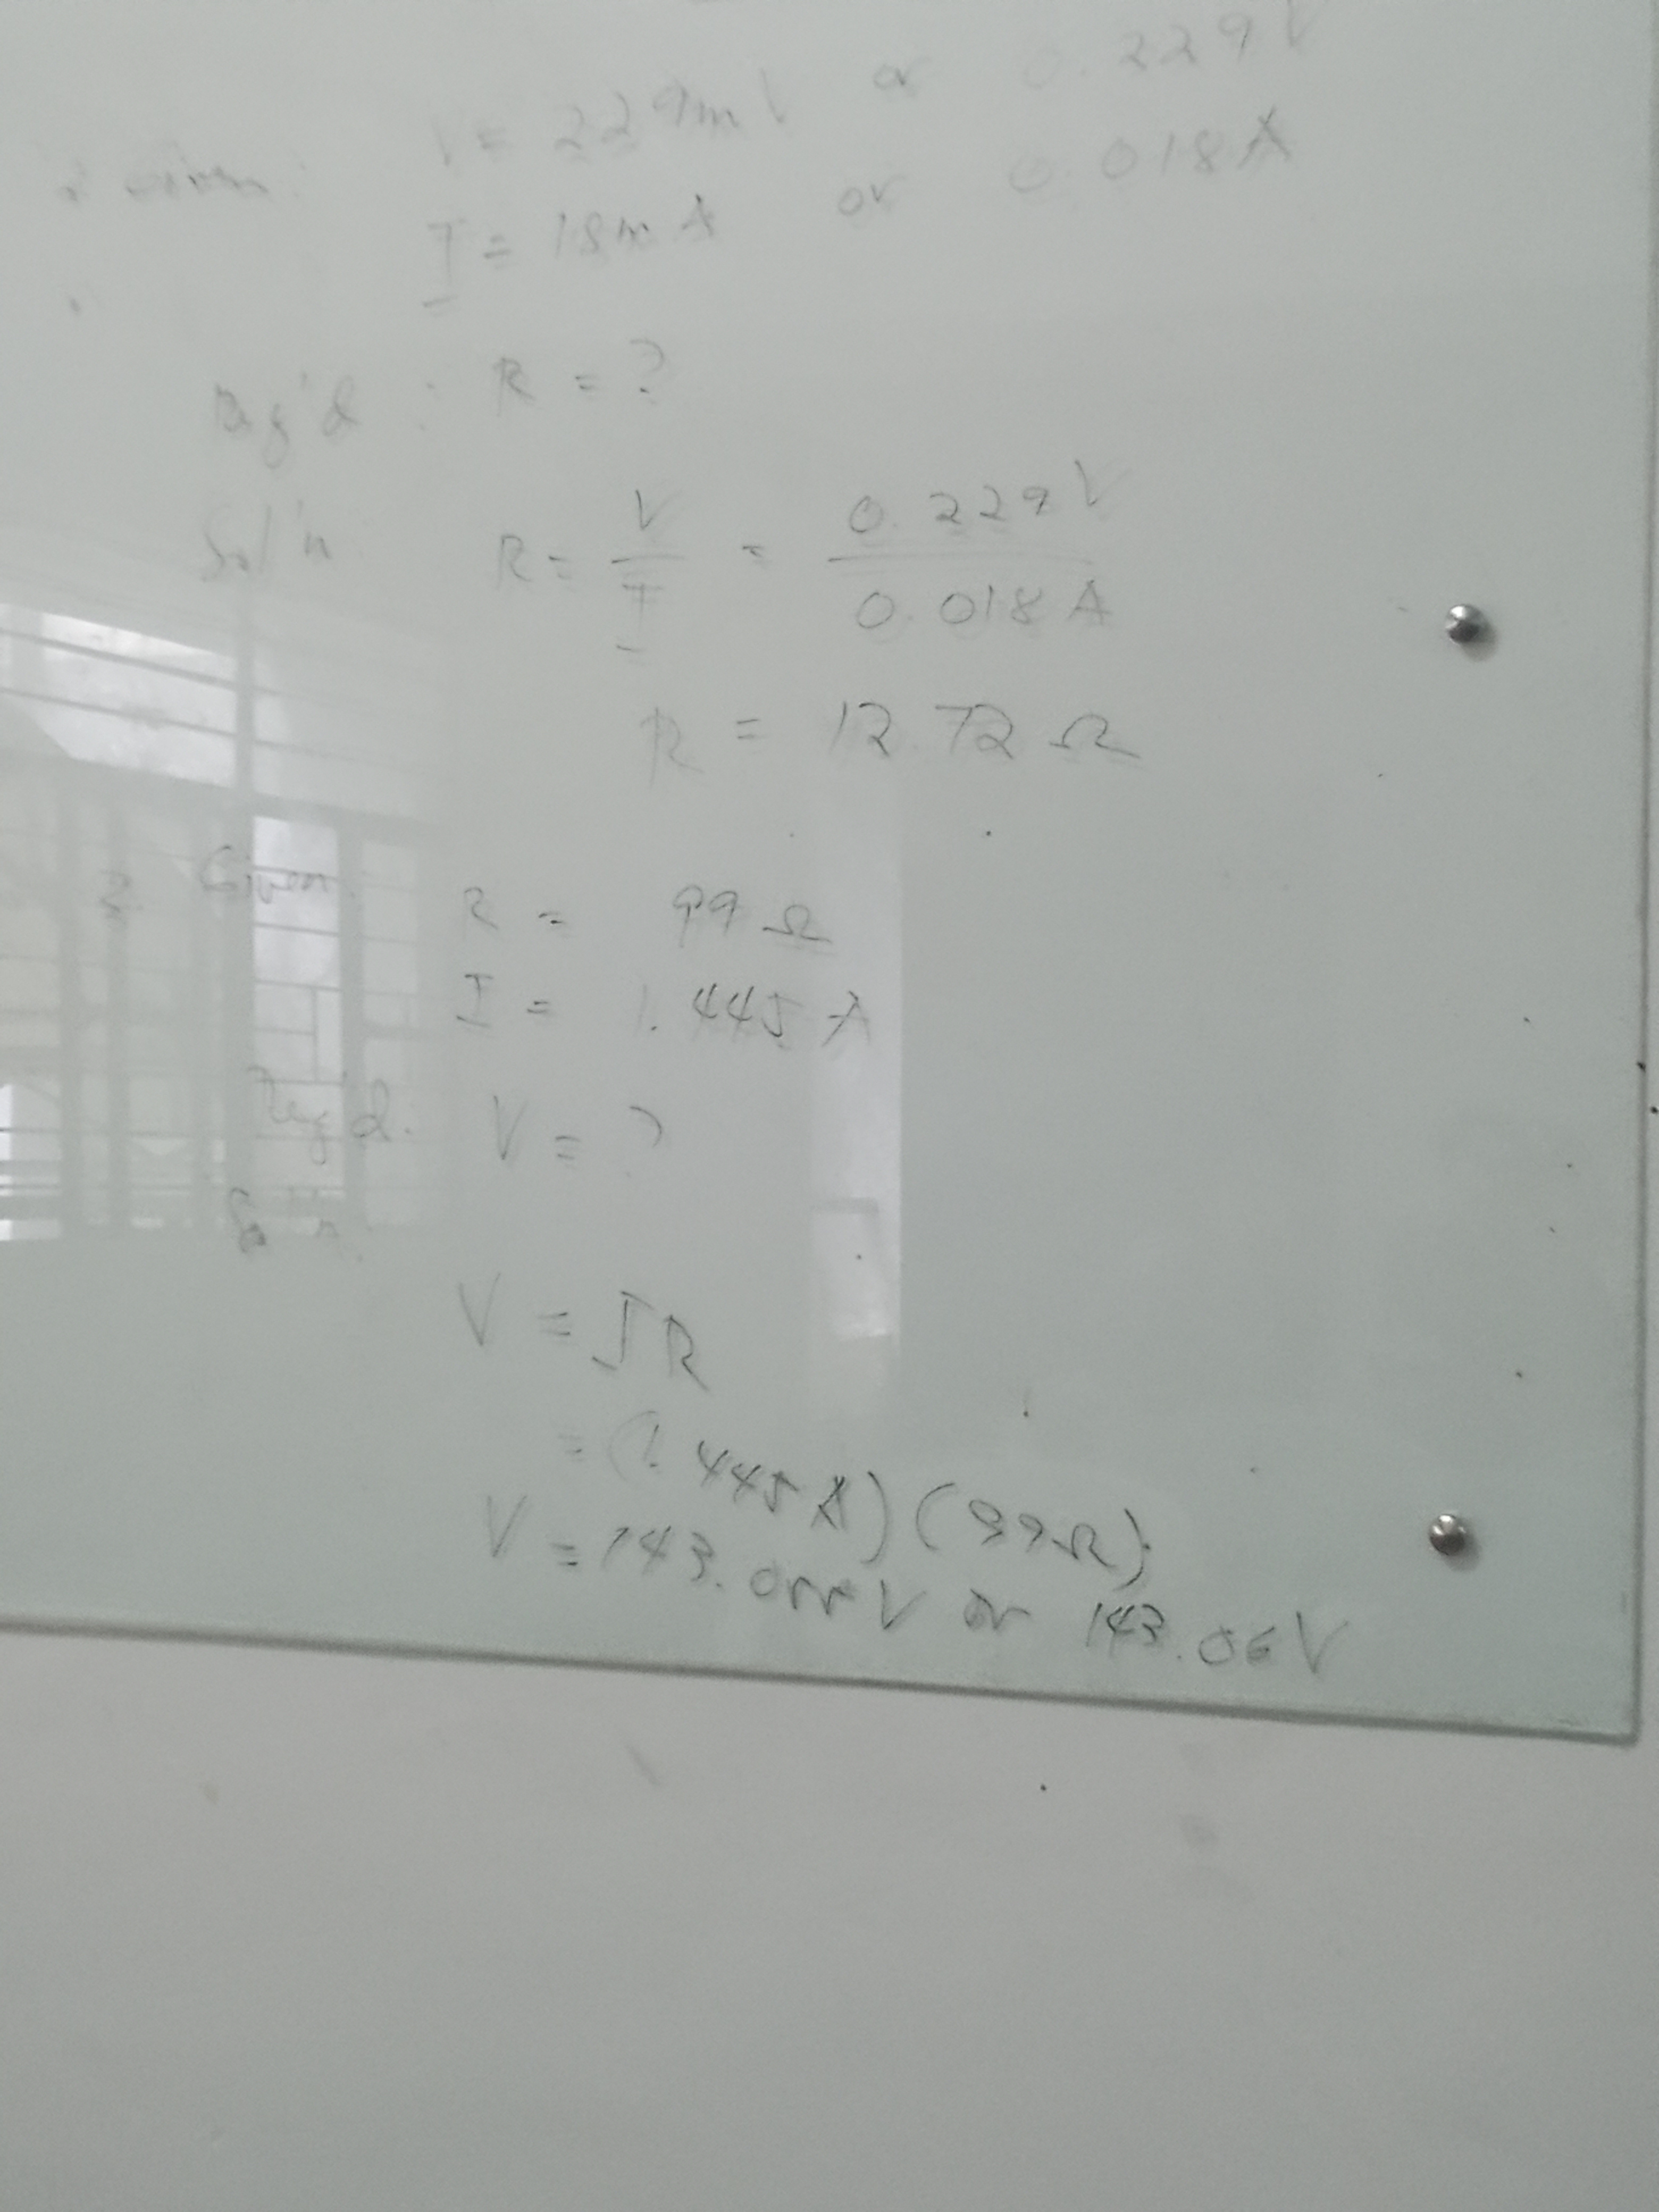 Given: V = 229mV or 0.229V
I = 18mA or 0.018A
Req'd : R = ?
Sol'n R = V/I = 0.229V/0.018A
R = 12.72 Ω
2. Given: R = 99 Ω
I = 1.445 A
Req'd. V = ?
Sol'n.
V = IR
= (1.445A) (99Ω)
V = 143.055V or 143.06V